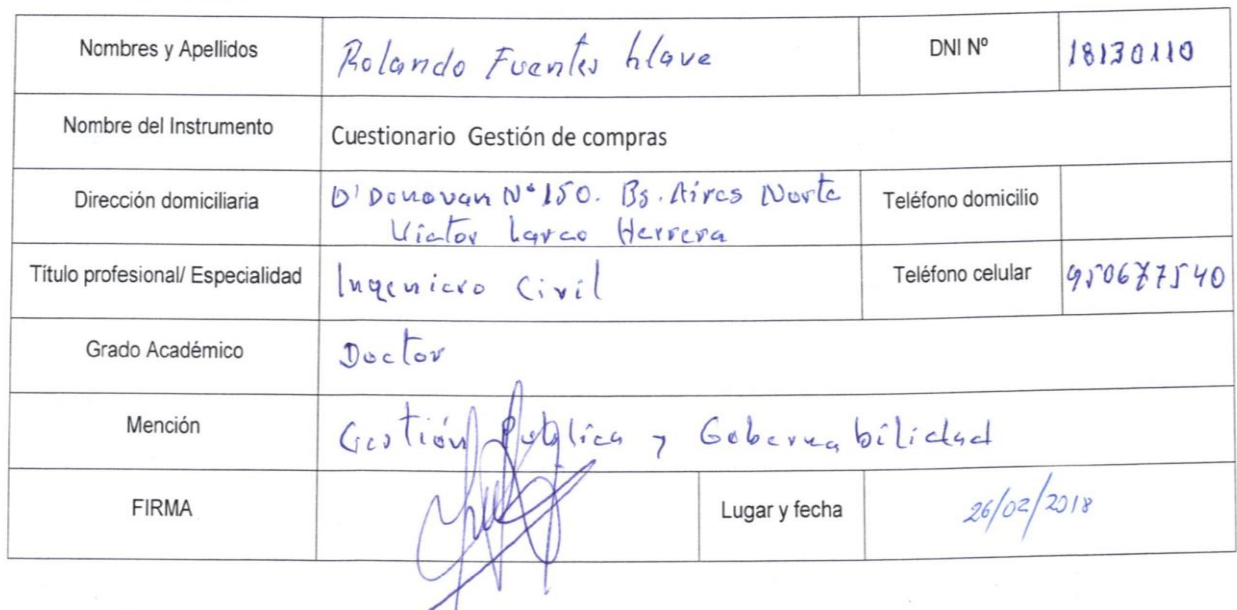 Nombres y Apellidos Rolando Fuentes Llave DNI Nº 18130110
Nombre del Instrumento Cuestionario Gestión de compras
Dirección domiciliaria O'Donovan N° 150. Bs. Aires Norte
Victor Larco Herrera
Teléfono domicilio
Título profesional/ Especialidad Ingeniero Civil Teléfono celular 950677540
Grado Académico Doctor
Mención Gestión Publica y Gobernabilidad
FIRMA Lugar y fecha 26/02/2018